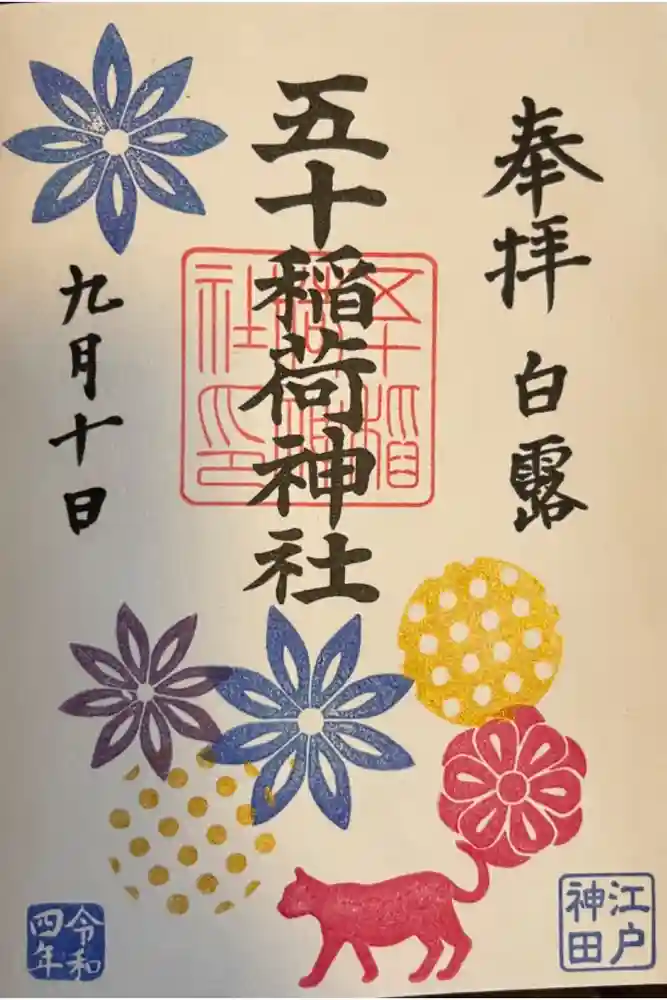 奉拝 白露
五十稲荷神社
五十稲荷神社印
九月十日
江戸神田
令和四年